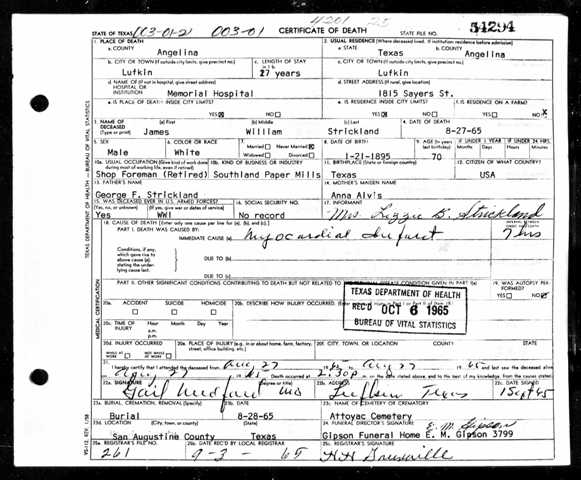 4201 25
STATE OF TEXAS 003-01 CERTIFICATE OF DEATH STATE FILE NO. 54294
1. PLACE OF DEATH 2. USUAL RESIDENCE (Where deceased lived. If institution: residence before admission)
a. COUNTY a. STATE b. COUNTY
Angelina Texas Angelina
b. CITY OR TOWN (If outside city limits, give precinct no.) c. LENGTH OF STAY in 1 b. c. CITY OR TOWN (If outside city limits, give precinct no.)
Lufkin 27 years Lufkin
d. NAME OF (If not in hospital, give street address) HOSPITAL OR INSTITUTION d. STREET ADDRESS (If rural, give location)
Memorial Hospital 1815 Sayers St.
e. IS PLACE OF DEATH INSIDE CITY LIMITS? e. IS RESIDENCE INSIDE CITY LIMITS? f. IS RESIDENCE ON A FARM?
YES X NO YES X NO YES NO X
3. NAME OF DECEASED (Type or print) (a) First (b) Middle (c) Last 4. DATE OF DEATH
James William Strickland 8-27-65
5. SEX 6. COLOR OR RACE 7. Married Never Married Widowed Divorced 8. DATE OF BIRTH 9. AGE (In years last birthday) IF UNDER 1 YEAR IF UNDER 24 HRS.
Male White 1-21-1895 70
10a. USUAL OCCUPATION (Give kind of work done during most of working life, even if retired) 10b. KIND OF BUSINESS OR INDUSTRY 11. BIRTHPLACE (State or foreign country) 12. CITIZEN OF WHAT COUNTRY?
Shop Foreman (Retired) Southland Paper Mills Texas USA
13. FATHER'S NAME 14. MOTHER'S MAIDEN NAME
George F. Strickland Anna Alvis
15. WAS DECEASED EVER IN U.S. ARMED FORCES? 16. SOCIAL SECURITY NO. 17. INFORMANT
(Yes, no, or unknown) (If yes, give war or dates of service)
Yes WWI No record Mrs Lizzie B. Strickland
18. CAUSE OF DEATH [Enter only one cause per line for (a), (b), and (c).]
PART I. DEATH WAS CAUSED BY:
IMMEDIATE CAUSE (a) Myocardial Infarct 7 hrs
Conditions, if any, which gave rise to above cause (a), stating the underlying cause last.
DUE TO (b)
DUE TO (c)
PART II. OTHER SIGNIFICANT CONDITIONS CONTRIBUTING TO DEATH BUT NOT RELATED TO THE TERMINAL DISEASE CONDITION GIVEN IN PART I(a) 19. WAS AUTOPSY PERFORMED?
YES NO X
20a. ACCIDENT SUICIDE HOMICIDE 20b. DESCRIBE HOW INJURY OCCURRED.
TEXAS DEPARTMENT OF HEALTH
REC'D OCT 6 1965
BUREAU OF VITAL STATISTICS
20c. TIME OF INJURY Hour Month Day Year
a.m.
p.m.
20d. INJURY OCCURRED 20e. PLACE OF INJURY (e.g. in or about home, farm, factory, street, office building, etc.) 20f. CITY, TOWN, OR LOCATION COUNTY STATE
WHILE AT WORK NOT WHILE AT WORK
21. I hereby certify that I attended the deceased from Aug 27 1965 to Aug 27 1965 and last saw the deceased alive
on Aug. 27 1965 Death occurred at 2:30 p m. on the date stated above, and to the best of my knowledge, from the causes stated.
22a. SIGNATURE (Degree or title) 22b. ADDRESS 22c. DATE SIGNED
Gail Medford MD Lufkin Texas 1 Sept 65
23a. BURIAL, CREMATION, REMOVAL (Specify) 23b. DATE 23c. NAME OF CEMETERY OR CREMATORY
Burial 8-28-65 Attoyac Cemetery
23d. LOCATION (City, town, or county) (State) 24. FUNERAL DIRECTOR'S SIGNATURE
E. M. Gipson
San Augustine County Texas Gipson Funeral Home E. M. Gipson 3799
25a. REGISTRAR'S FILE NO. 25b. DATE REC'D BY LOCAL REGISTRAR 25c. REGISTRAR'S SIGNATURE
261 9-3-65
TEXAS DEPARTMENT OF HEALTH — BUREAU OF VITAL STATISTICS
MEDICAL CERTIFICATION
VS-112, REV. 1/58